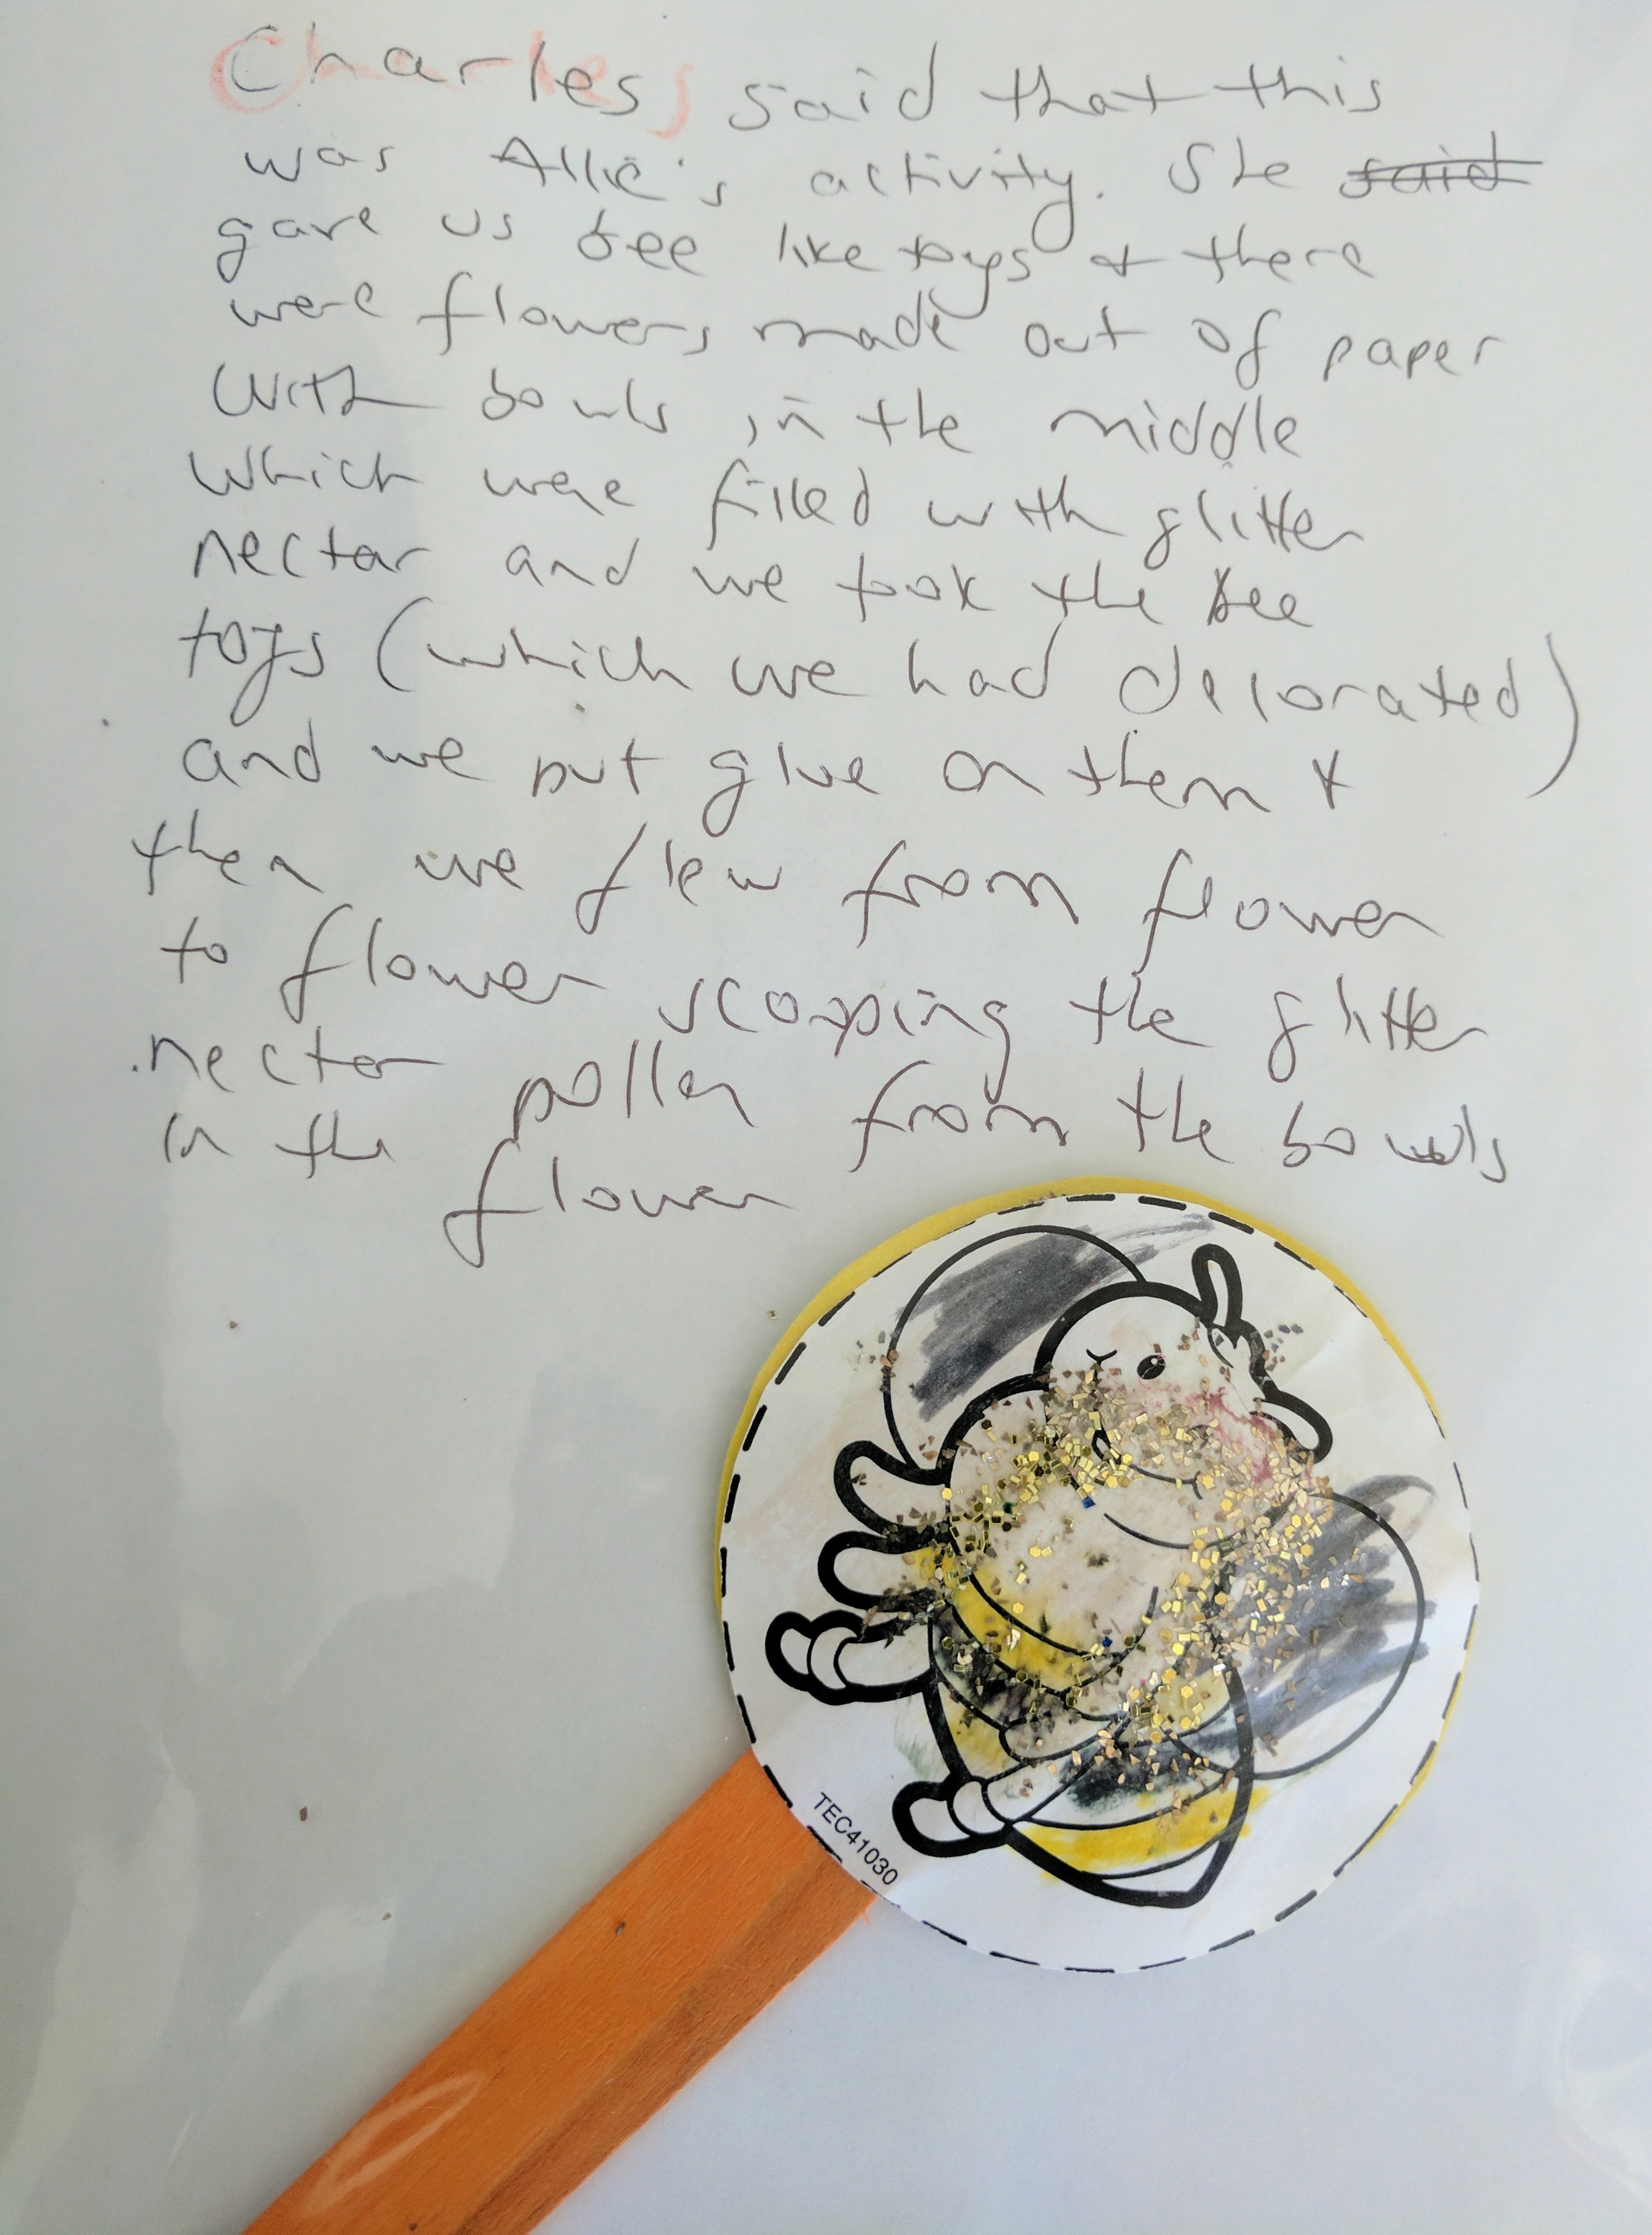 Charles said that this
was Allie's activity. She said
gave us bee like toys & there
were flowers made out of paper
With bowls in the middle
which were filled with glitter
nectar and we took the bee
toys (which we had decorated)
and we put glue on them &
then we flew from flower
to flower scooping the glitter
nectar pollen from the bowls
in the flower
TEC41030